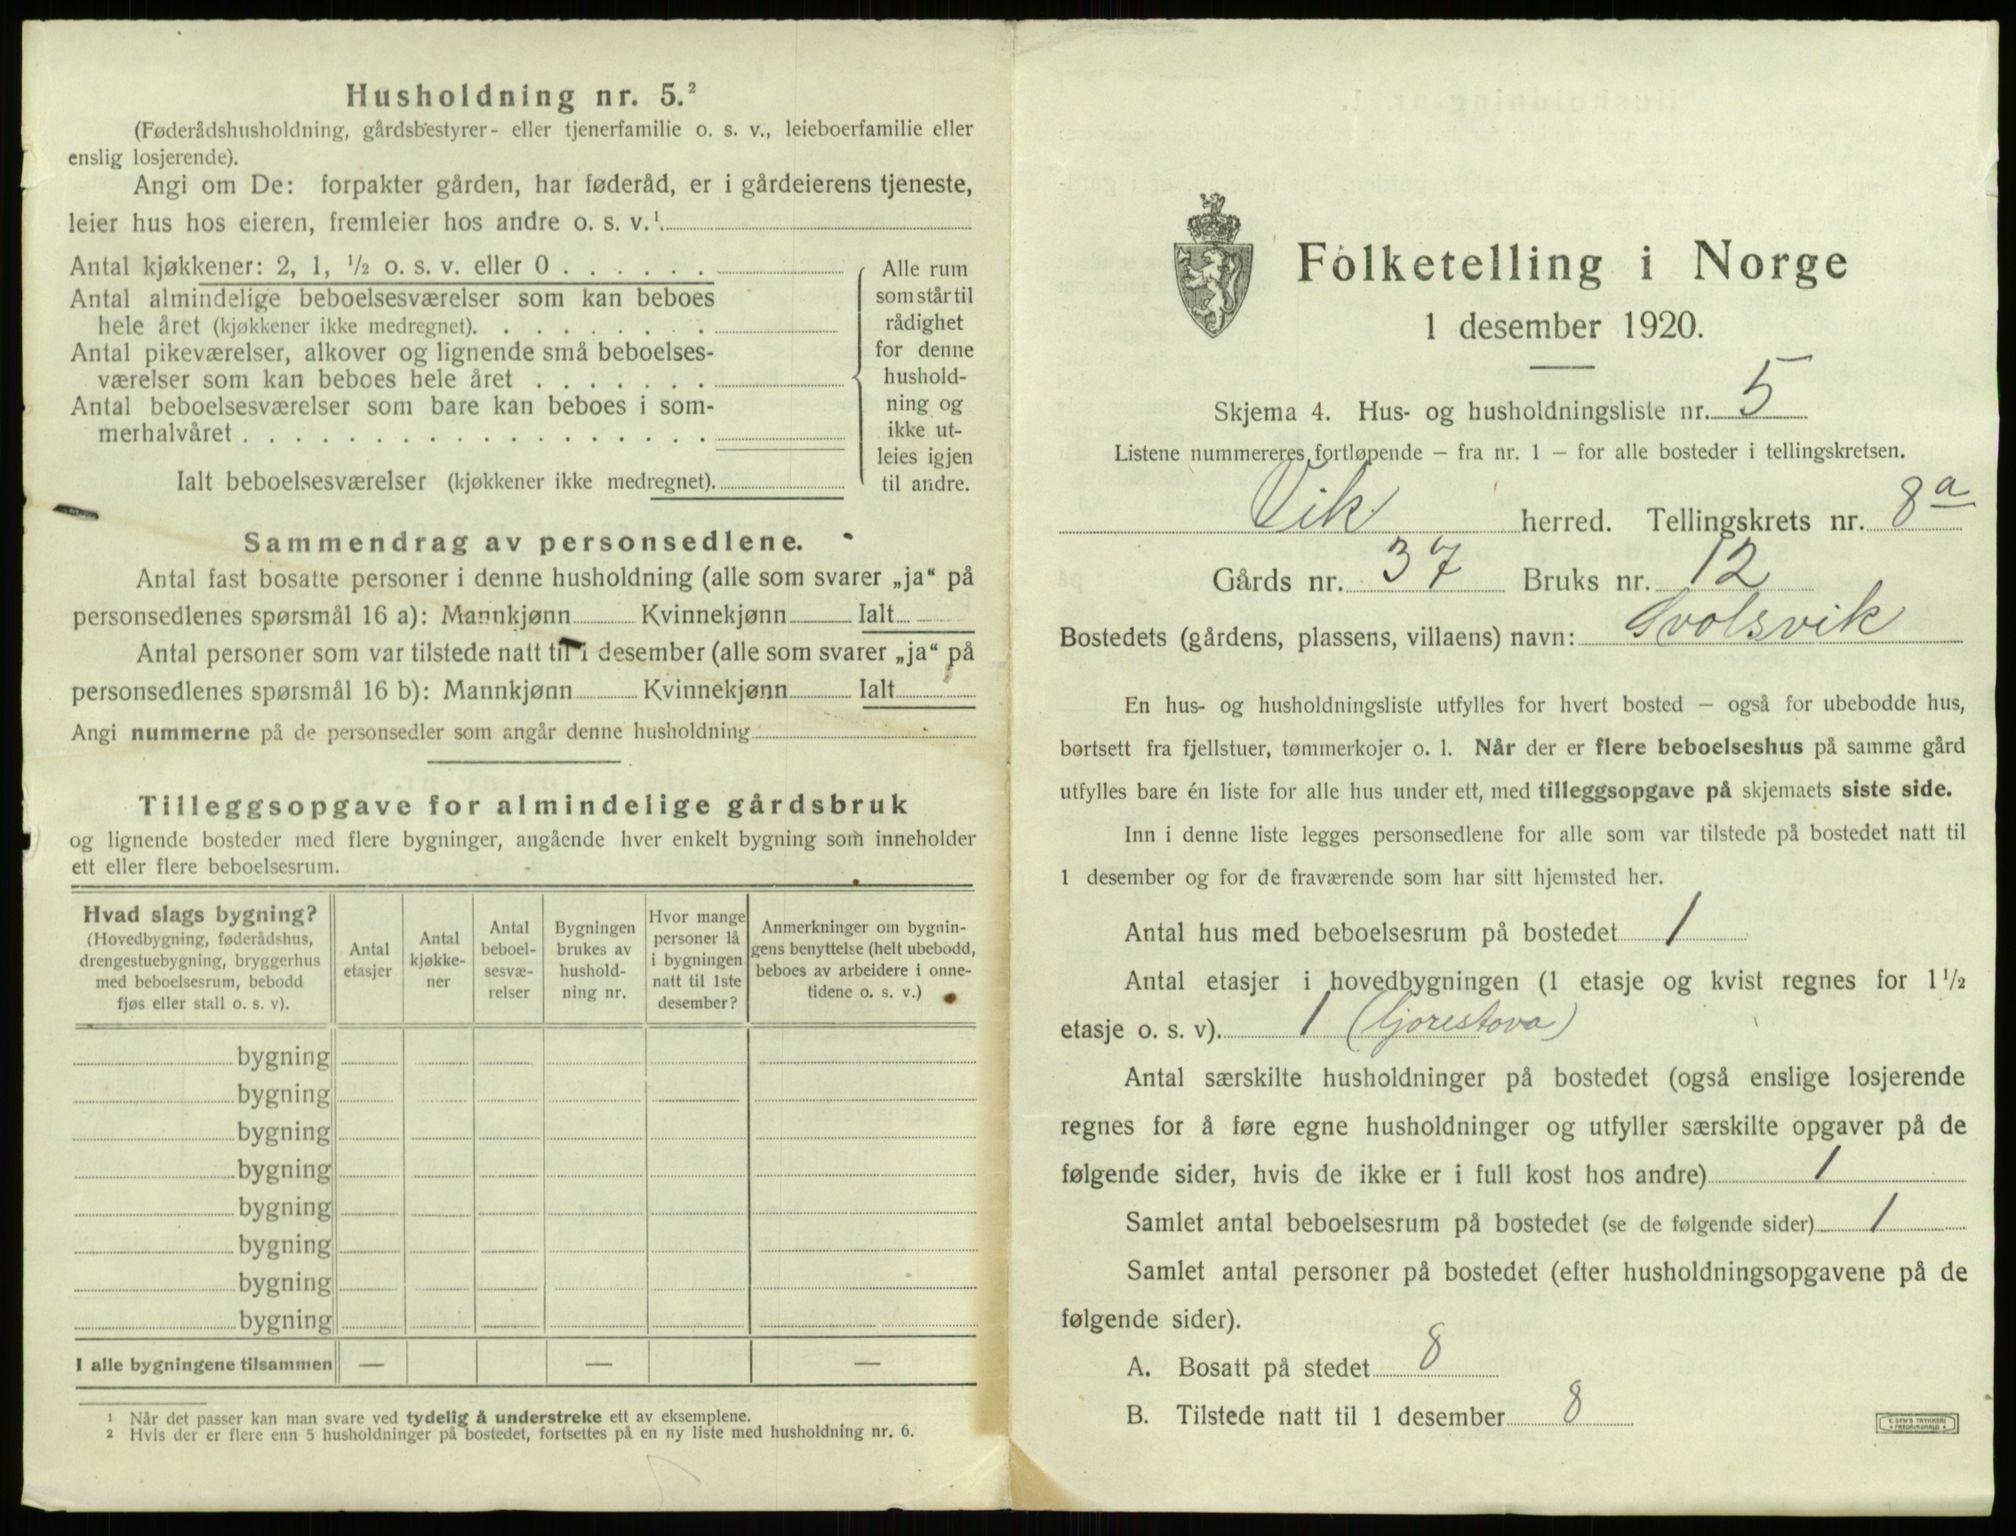 Husholdning nr. 5.²
(Føderådshusholdning, gårdsbestyrer- eller tjenerfamilie o. s. v., leieboerfamilie eller
enslig losjerende).
Angi om De: forpakter gården, har føderåd, er i gårdeierens tjeneste,
leier hus hos eieren, fremleier hos andre o. s. v.¹
Antal kjøkkener: 2, 1, ½ o. s. v. eller 0 . . . . . .
Antal almindelige beboelsesværelser som kan beboes
hele året (kjøkkener ikke medregnet). . . . . . . . .
Antal pikeværelser, alkover og lignende små beboelses-
værelser som kan beboes hele året . . . . . . .
Antal beboelsesværelser som bare kan beboes i som-
merhalvåret . . . . . . . . . . . . . . . . . .
Alle rum
som står til
rådighet
for denne
hushold-
ning og
ikke ut-
leies igjen
til andre.
Ialt beboelsesværelser (kjøkkener ikke medregnet).
Sammendrag av personsedlene.
Antal fast bosatte personer i denne husholdning (alle som svarer „ja“ på
personsedlenes spørsmål 16 a): Mannkjønn Kvinnekjønn Ialt
Antal personer som var tilstede natt til 1 desember (alle som svarer „ja“ på
personsedlenes spørsmål 16 b): Mannkjønn Kvinnekjønn Ialt
Angi nummerne på de personsedler som angår denne husholdning
Tilleggsopgave for almindelige gårdsbruk
og lignende bosteder med flere bygninger, angående hver enkelt bygning som inneholder
ett eller flere beboelsesrum.
Hvad slags bygning?
(Hovedbygning, føderådshus,
drengestuebygning, bryggerhus
med beboelsesrum, bebodd
fjøs eller stall o. s. v).
Antal
etasjer
Antal
kjøkke-
ner
Antal
beboel-
sesvæ-
relser
Bygningen
brukes av
hushold-
ning nr.
Hvor mange
personer lå
i bygningen
natt til 1ste
desember?
Anmerkninger om bygnin-
gens benyttelse (helt ubebodd,
beboes av arbeidere i onne-
tidene o. s. v.)
bygning
bygning
bygning
bygning
bygning
bygning
bygning
bygning
I alle bygningene tilsammen — — —
¹ Når det passer kan man svare ved tydelig å understreke ett av eksemplene.
² Hvis der er flere enn 5 husholdninger på bostedet, fortsettes på en ny liste med husholdning nr. 6.
Folketelling i Norge
1 desember 1920.
Skjema 4. Hus- og husholdningsliste nr. 5
Listene nummereres fortløpende – fra nr. 1 – for alle bosteder i tellingskretsen.
Vik herred. Tellingskrets nr. 8a
Gårds nr. 37 Bruks nr. 12
Bostedets (gårdens, plassens, villaens) navn: Svolsvik
En hus- og husholdningsliste utfylles for hvert bosted – også for ubebodde hus,
bortsett fra fjellstuer, tømmerkojer o. l. Når der er flere beboelseshus på samme gård
utfylles bare én liste for alle hus under ett, med tilleggsopgave på skjemaets siste side.
Inn i denne liste legges personsedlene for alle som var tilstede på bostedet natt til
1 desember og for de fraværende som har sitt hjemsted her.
Antal hus med beboelsesrum på bostedet 1
Antal etasjer i hovedbygningen (1 etasje og kvist regnes for 1 ½
etasje o. s. v). 1 (Ljorestova)
Antal særskilte husholdninger på bostedet (også enslige losjerende
regnes for å føre egne husholdninger og utfyller særskilte opgaver på de
følgende sider, hvis de ikke er i full kost hos andre) 1
Samlet antal beboelsesrum på bostedet (se de følgende sider) 1
Samlet antal personer på bostedet (efter husholdningsopgavene på de
følgende sider).
A. Bosatt på stedet 8
B. Tilstede natt til 1 desember 8
E. SEM'S TRYKKERI
FREDRIKSHALD